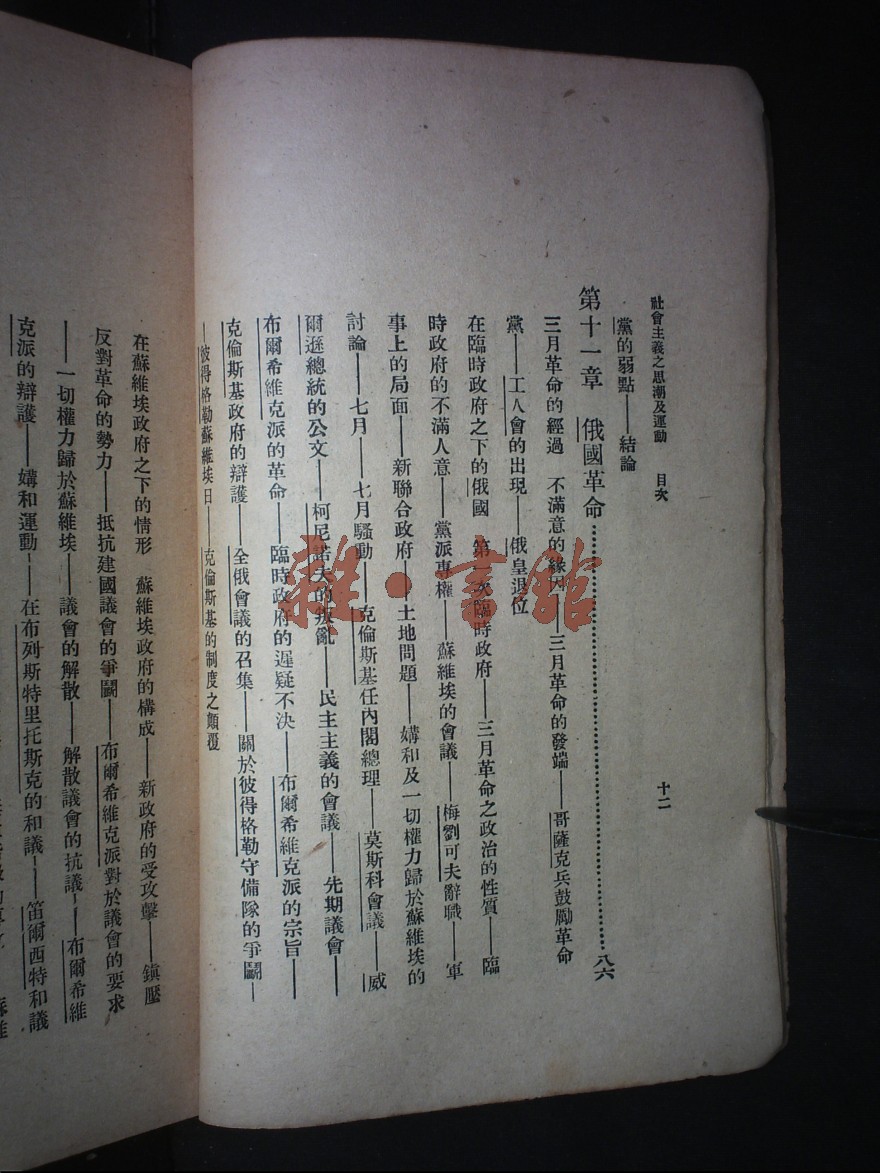 社會主義之思潮及運動　目次
十二
黨的弱點——結論
第十一章　俄國革命……………八六
三月革命的經過　不滿意的緣因——三月革命的發端——哥薩克兵鼓勵革命
黨——工人會的出現——俄皇退位
在臨時政府之下的俄國　第一次臨時政府——三月革命之政治的性質——臨
時政府的不滿人意——黨派專權——蘇維埃的會議——梅劉可夫辭職——軍
事上的局面——新聯合政府——土地問題——媾和及一切權力歸於蘇維埃的
討論——七月——七月騷動——克倫斯基任內閣總理——莫斯科會議——威
爾遜總統的公文——柯尼諾夫的叛亂——民主主義的會議——先期議會——
布爾希維克派的革命——臨時政府的遲疑不決——布爾希維克派的宗旨——
克倫斯基政府的辯護——全俄會議的召集——關於彼得格勒守備隊的爭鬪—
—彼得格勒蘇維埃日——克倫斯基的制度之顛覆
在蘇維埃政府之下的情形　蘇維埃政府的構成——新政府的受攻擊——鎮壓
反對革命的勢力——抵抗建國議會的爭鬪——布爾希維克派對於議會的要求
——一切權力歸於蘇維埃——議會的解散——解散議會的抗議——布爾希維
克派的辯護——媾和運動——在布列斯特里托斯克的和議——笛爾西特和議
雜·書館